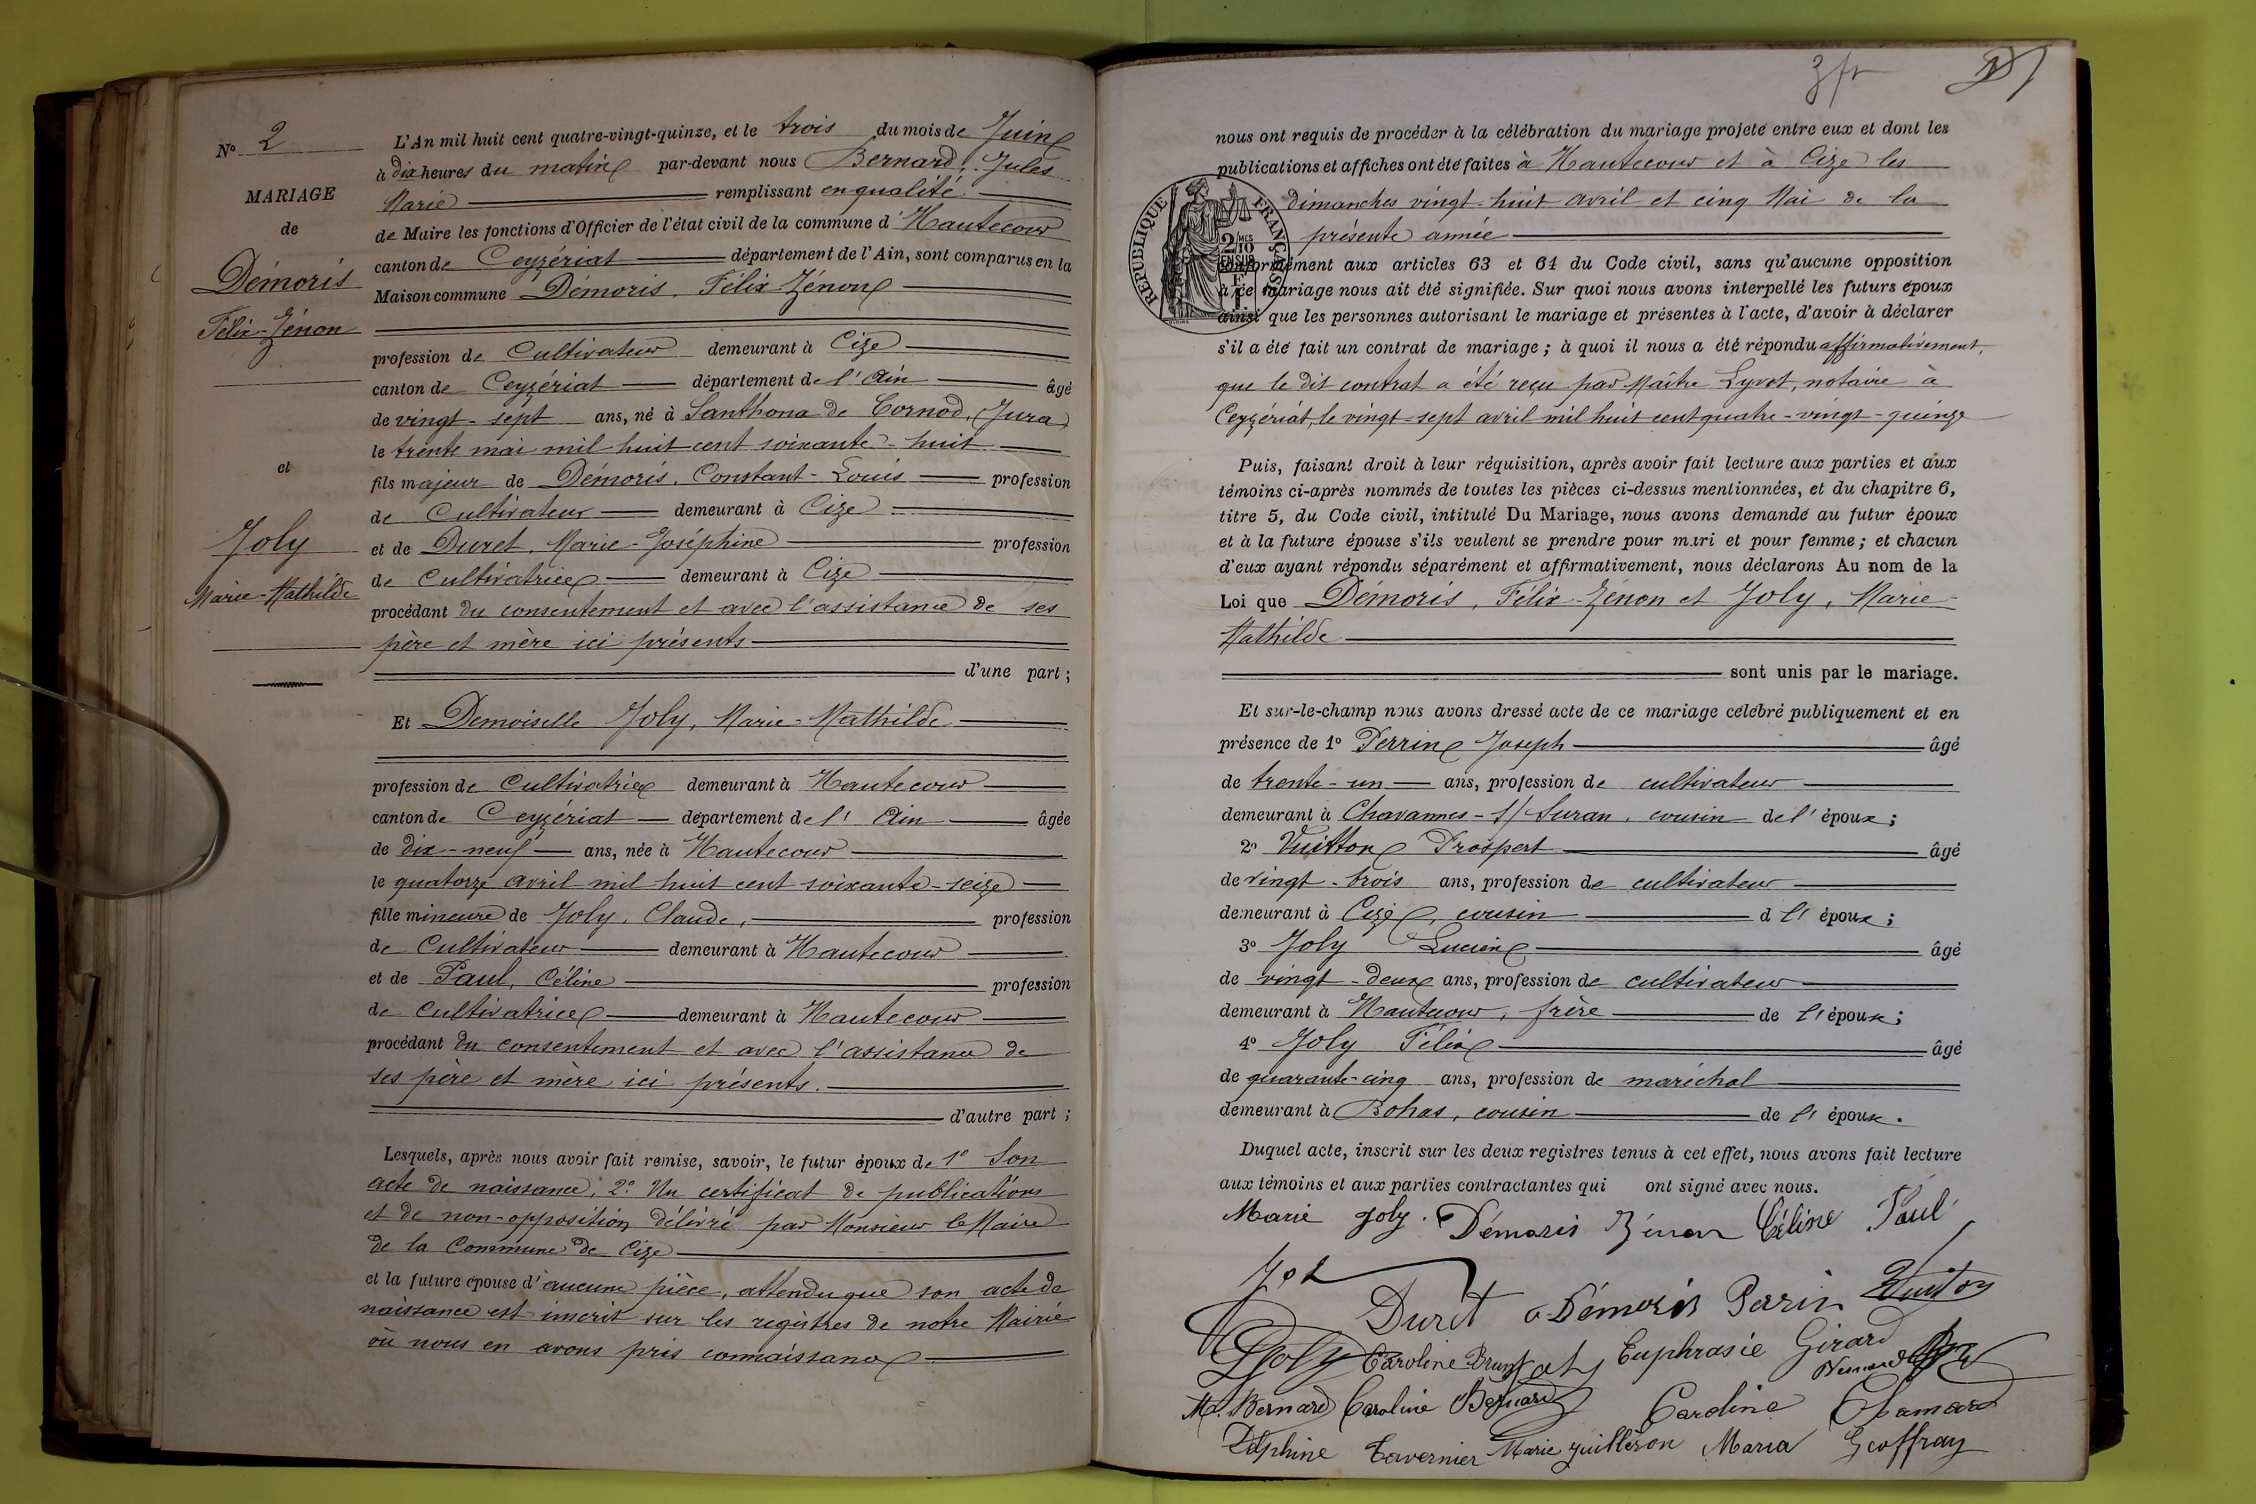 N° 2
MARIAGE
de
Démoris
Félix-Zénon
et
Joly
Marie-Mathilde
L'An mil huit cent quatre-vingt-quinze, et le trois du mois de Juin
à dix heures du matin par-devant nous Bernard, Jules
Marie remplissant en qualité
de Maire les fonctions d'Officier de l'état civil de la commune d'Hautecour
canton de Ceyzériat département de l'Ain, sont comparus en la
Maison commune Démoris, Félix-Zénon
profession de Cultivateur demeurant à Cize
canton de Ceyzériat département de l'Ain âgé
de vingt-sept ans, né à Santhona de Cornod, (Jura)
le trente mai mil huit cent soixante-huit
fils majeur de Démoris, Constant-Louis profession
de Cultivateur demeurant à Cize
et de Duret, Marie-Joséphine profession
de Cultivatrice demeurant à Cize
procédant du consentement et avec l'assistance de ses
père et mère ici présents
d'une part ;
Et Demoiselle Joly, Marie-Mathilde
profession de Cultivatrice demeurant à Hautecour
canton de Ceyzériat département de l'Ain âgée
de dix-neuf ans, née à Hautecour
le quatorze avril mil huit cent soixante-seize
fille mineure de Joly, Claude, profession
de Cultivateur demeurant à Hautecour
et de Paul, Céline profession
de Cultivatrice demeurant à Hautecour
procédant du consentement et avec l'assistance de
ses père et mère ici présents.
d'autre part ;
Lesquels, après nous avoir fait remise, savoir, le futur époux de 1° Son
acte de naissance, 2° Un certificat de publications
et de non-opposition délivré par Monsieur le Maire
de la Commune de Cize
et la future épouse d'aucune pièce, attendu que son acte de
naissance est inscrit sur les registres de notre Mairie
où nous en avons pris connaissance
3 fr
nous ont requis de procéder à la célébration du mariage projeté entre eux et dont les
publications et affiches ont été faites à Hautecour et à Cize les
dimanches vingt-huit avril et cinq Mai de la
présente année
RÉPUBLIQUE FRANÇAISE
2/10 EN SUS
conformément aux articles 63 et 64 du Code civil, sans qu'aucune opposition
à ce mariage nous ait été signifiée. Sur quoi nous avons interpellé les futurs époux
ainsi que les personnes autorisant le mariage et présentes à l'acte, d'avoir à déclarer
s'il a été fait un contrat de mariage ; à quoi il nous a été répondu affirmativement,
que le dit contrat a été reçu par Maître Lyvet, notaire à
Ceyzériat, le vingt-sept avril mil huit cent quatre-vingt-quinze
Puis, faisant droit à leur réquisition, après avoir fait lecture aux parties et aux
témoins ci-après nommés de toutes les pièces ci-dessus mentionnées, et du chapitre 6,
titre 5, du Code civil, intitulé Du Mariage, nous avons demandé au futur époux
et à la future épouse s'ils veulent se prendre pour mari et pour femme ; et chacun
d'eux ayant répondu séparément et affirmativement, nous déclarons Au nom de la
Loi que Démoris, Félix-Zénon et Joly, Marie-
Mathilde
sont unis par le mariage.
Et sur-le-champ nous avons dressé acte de ce mariage célébré publiquement et en
présence de 1° Perrin Joseph âgé
de trente-un ans, profession de cultivateur
demeurant à Chavannes-s/Suran, cousin de l'époux ;
2° Vuitton Prospert âgé
de vingt-trois ans, profession de cultivateur
demeurant à Cize, cousin d l'époux ;
3° Joly Lucien âgé
de vingt-deux ans, profession de cultivateur
demeurant à Hautecour, frère de l'épouse ;
4° Joly Félix âgé
de quarante-cinq ans, profession de maréchal
demeurant à Bohas, cousin de l'épouse.
Duquel acte, inscrit sur les deux registres tenus à cet effet, nous avons fait lecture
aux témoins et aux parties contractantes qui ont signé avec nous.
Marie Joly. Démoris Zénon Céline Paul
Duret Démoris Perrin Vuitton
Joly Caroline Euphrasie Girard
Bernard
M. Bernard Caroline Bernard Caroline Chamard
Delphine Tavernier Marie Juilleron Maria Geoffray